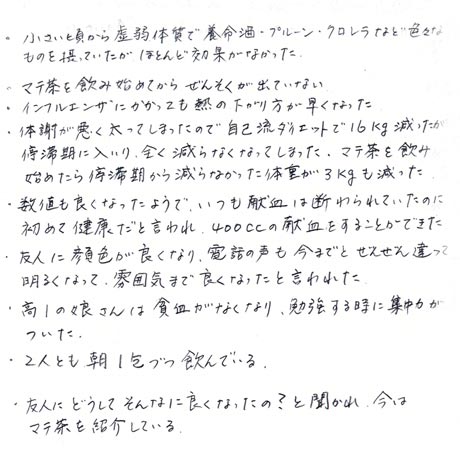 ・小さい頃から虚弱体質で養命酒・プルーン・クロレラなど色々な
ものを摂っていたがほとんど効果がなかった.
・マテ茶を飲み始めてからぜんそくが出ていない
・インフルエンザにかかっても熱の下がり方が早くなった.
・体調が悪く太ってしまったので自己流ダイエットで16kg減ったが
停滞期に入り、全く減らなくなってしまった. マテ茶を飲み
始めたら停滞期から減らなかった体重が3kgも減った.
・数値も良くなったようで、いつも献血は断わられていたのに
初めて健康だと言われ、400ccの献血をすることができた
・友人に顔色が良くなり、電話の声も今までとぜんぜん違って
明るくなって、雰囲気まで良くなったと言われた.
・高1の娘さんは貧血がなくなり、勉強する時に集中力が
ついた.
・2人とも朝1包づつ飲んでいる.
・友人にどうしてそんなに良くなったの?と聞かれ、今は
マテ茶を紹介している.